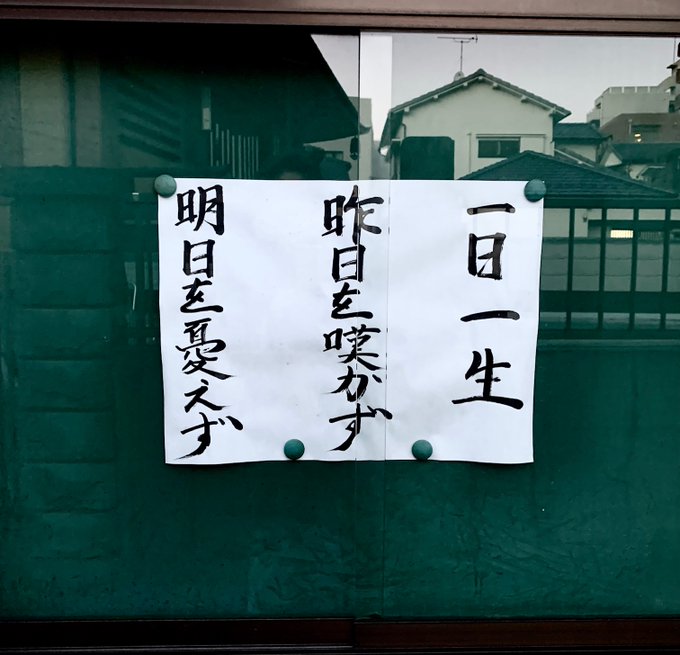 一日一生
昨日を嘆かず
明日を憂えず